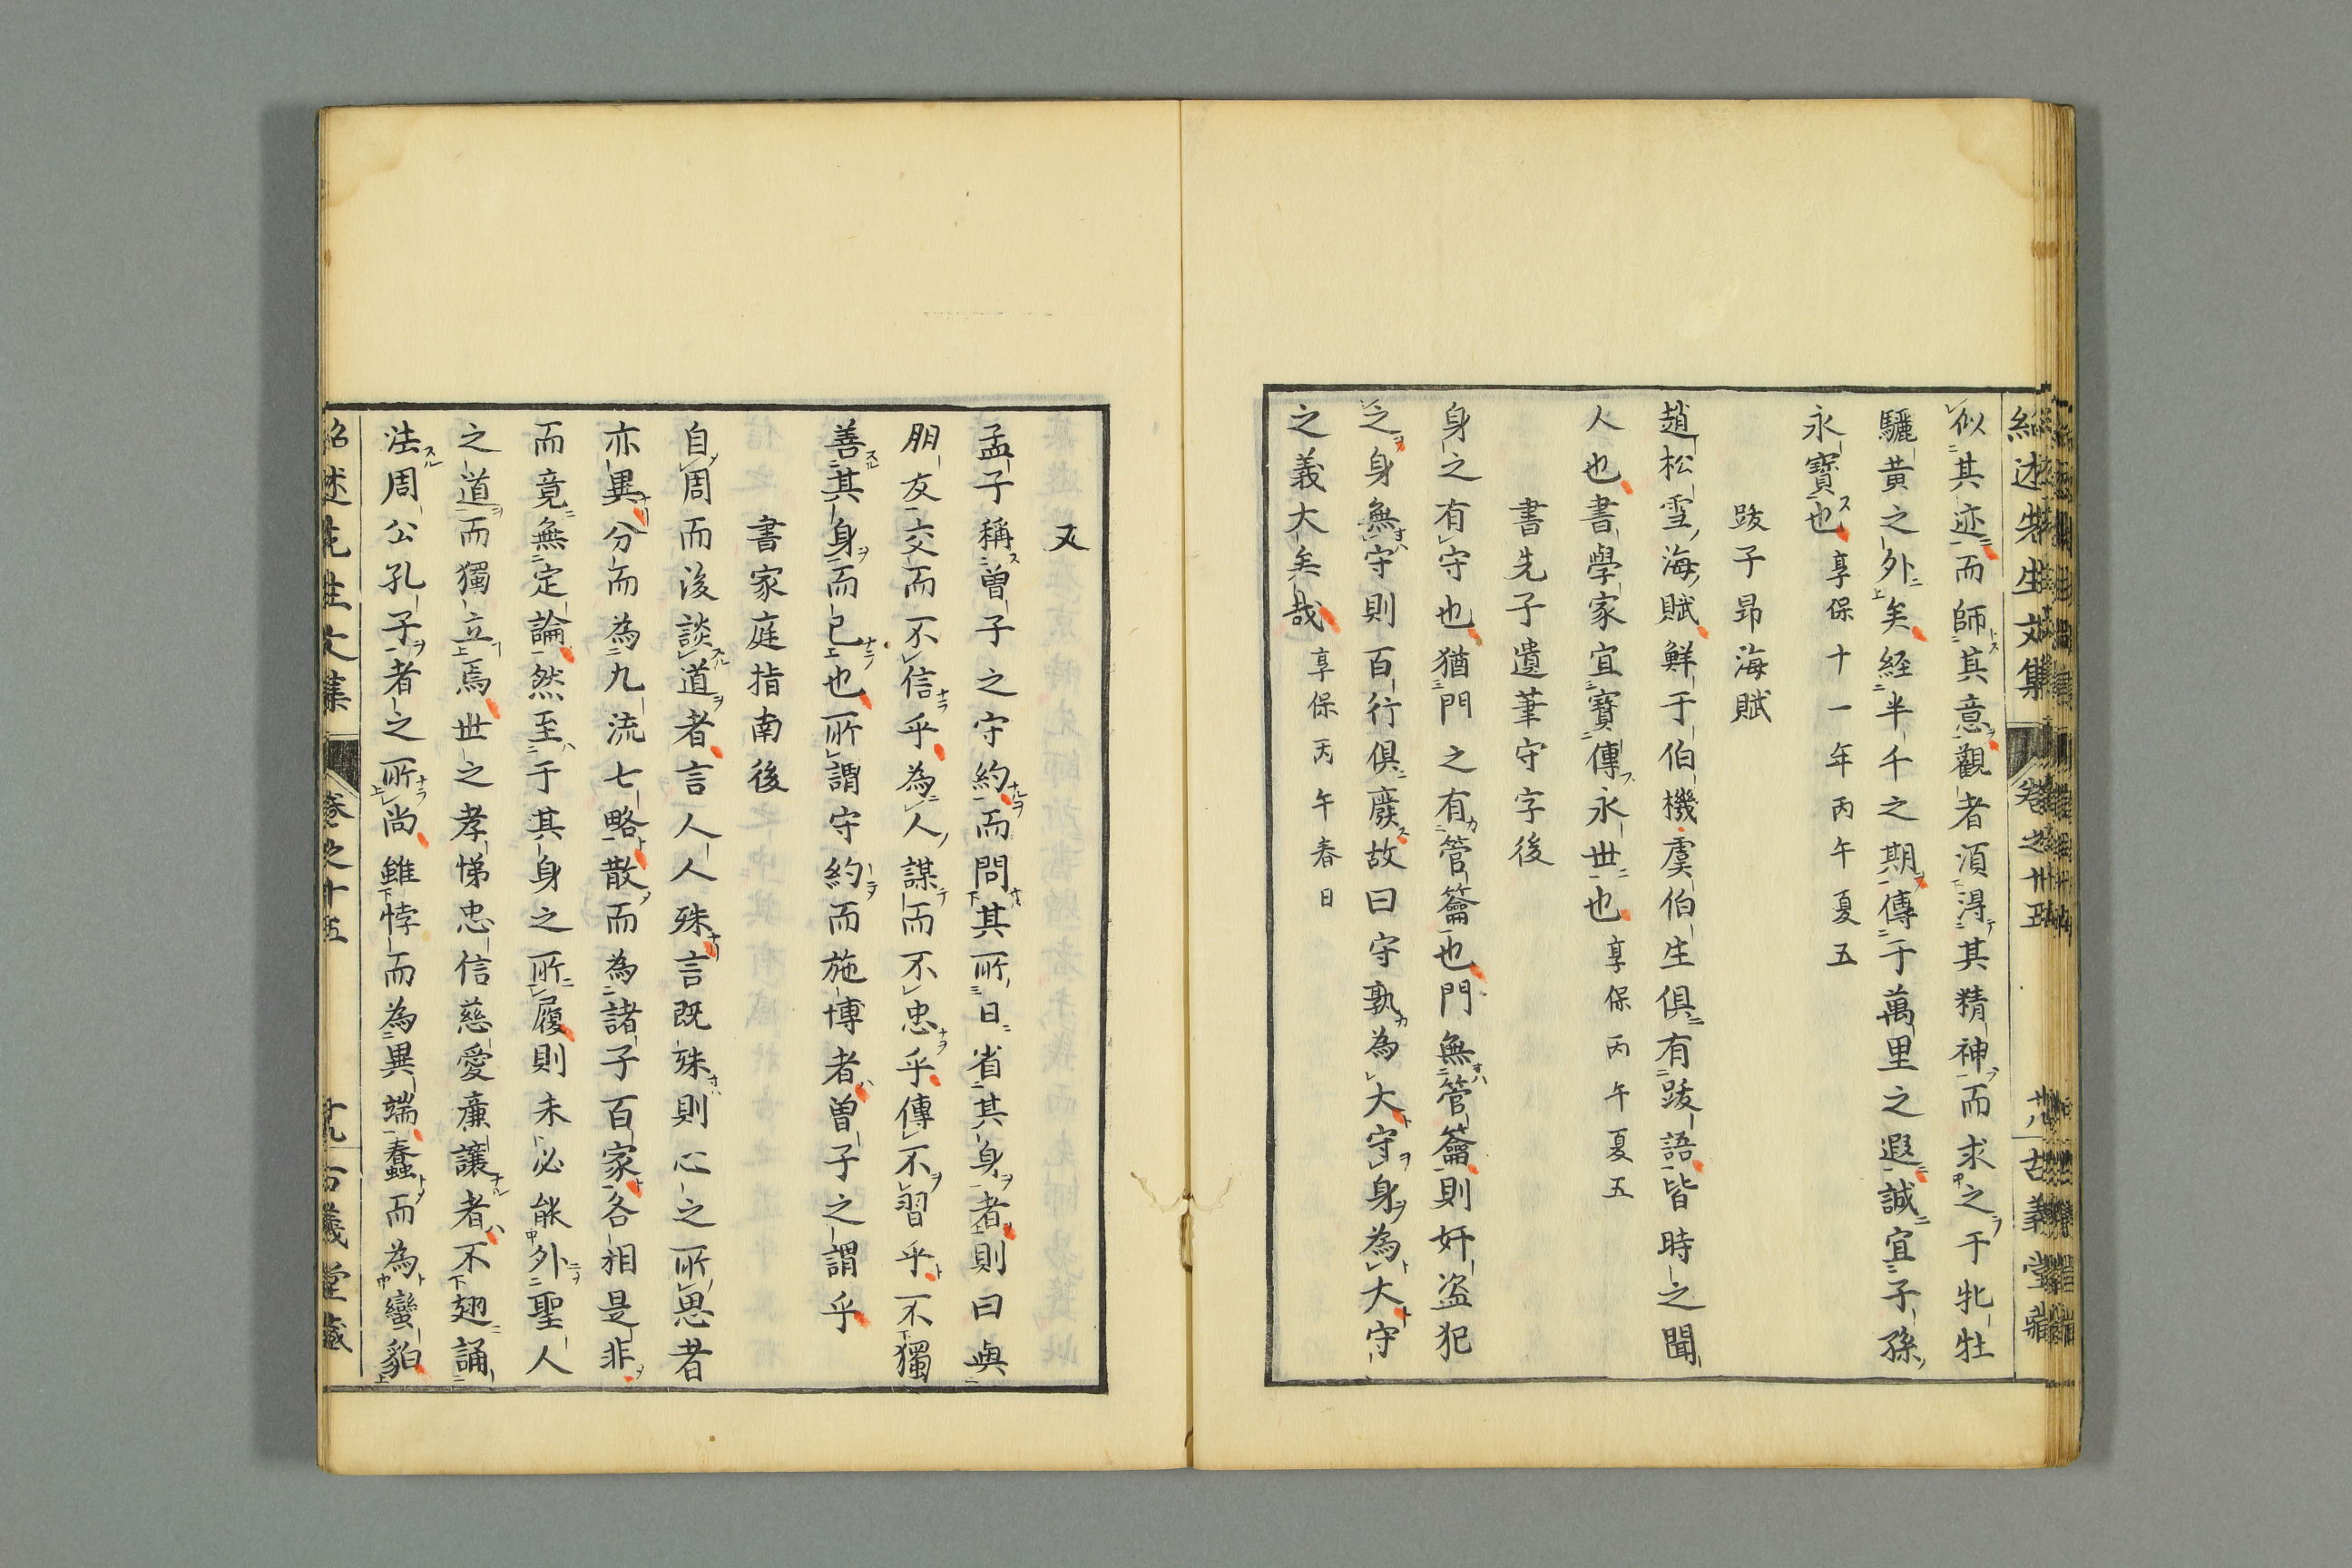 紹述先生文集 卷之廿五 廿八 古義堂藏
似其迹而師其意觀者須得其精神而求之于牝牡
驪黄之外矣経半千之期傳千萬里之遐誠宜子孫
永寶也 享保十一年丙午夏五
跋子昂海賦
趙松雪海賦鮮于伯機虞伯生俱有跋語皆時之聞
人也書學家宜寶傳永世也 享保丙午夏五
書先子遺筆守字後
身之有守也猶門之有管籥也門無管籥則奸盗犯
之身無守則百行俱廢故曰守孰為大守身為大守
之義大矣哉 享保丙午春日
又
孟子稱曽子之守約而問其所日省其身者則曰與
朋友交而不信乎為人謀而不忠乎傳不習乎不獨
善其身而已也所謂守約而施博者曽子之謂乎
書家庭指南後
自周而後談道者言人人殊言既殊則心之所思者
亦異分而為九流七略散而為諸子百家各相是非
而竟無定論然至于其身之所履則未必能外聖人
之道而獨立焉世之孝悌忠信慈愛亷讓者不翅誦
法周公孔子者之所尚雖悖而為異端蠢而為蠻貊
紹述先生文集 卷之廿五 廿九 古義堂藏